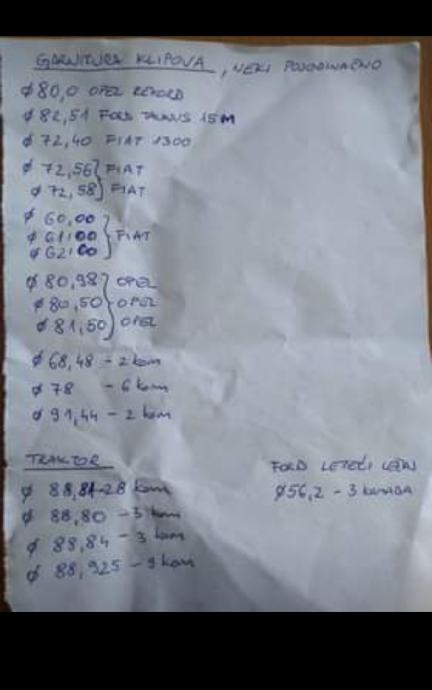 GARNITURA KLIPOVA, NEKI POJEDINAČNO
ø 80,0 OPEL REKORD
ø 82,51 FORD TAUNUS 15M
ø 72,40 FIAT 1300
ø 72,56 } FIAT
ø 72,58 } FIAT
ø 60,00
ø 61,00 } FIAT
ø 62,00
ø 80,98 } OPEL
ø 80,50 } OPEL
ø 81,50 } OPEL
ø 68,48 - 2 kom
ø 78 - 6 kom
ø 91,44 - 2 kom
TRAKTOR
ø 88,81-28 kom
ø 88,80 - 3 kom
ø 88,84 - 3 kom
ø 88,925 - 9 kom
FORD LETEĆI LEŽAJ
ø56,2 - 3 KOMADA